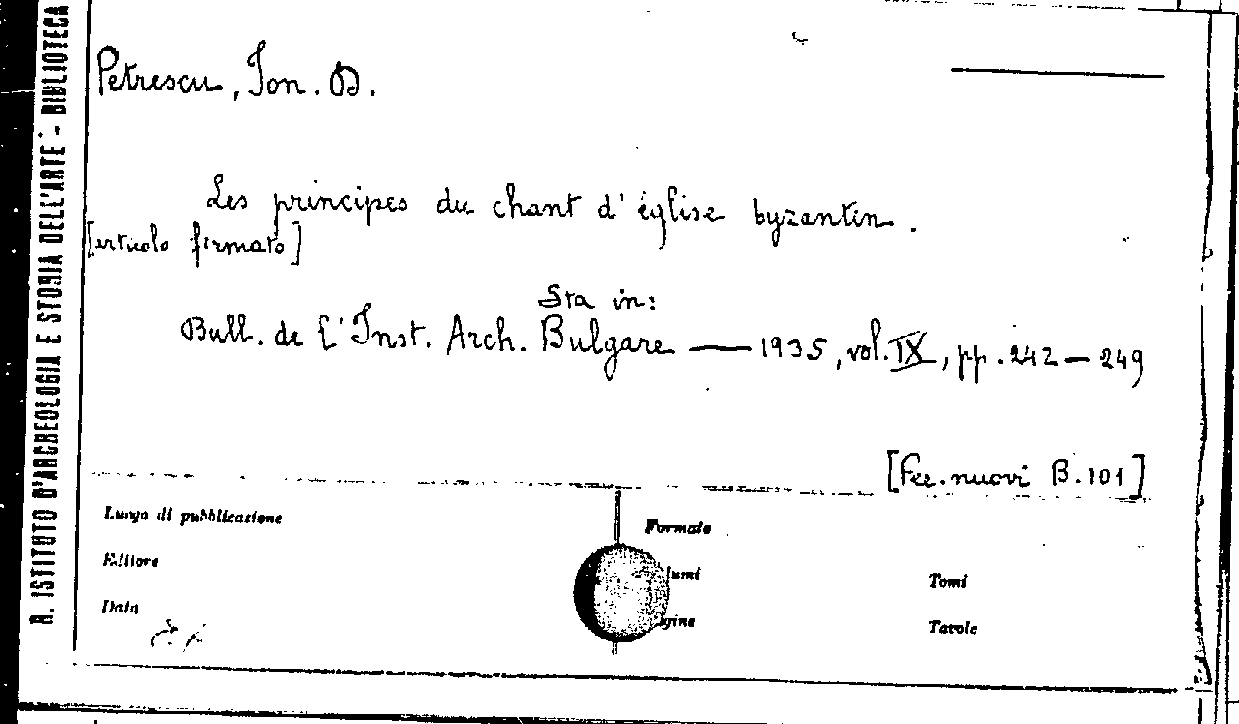 R. ISTITUTO D'ARCHEOLOGIA E STORIA DELL'ARTE - BIBLIOTECA
Petrescu, Ion. D.
Les principes du chant d'église byzantin.
[articolo firmato]
Sta in:
Bull. de l'Inst. Arch. Bulgare — 1935, vol. IX, pp. 242 — 249
[Per. nuovi B. 101]
Luogo di pubblicazione
Formato
Editore
lumi
Tomi
Data
gine
Tavole